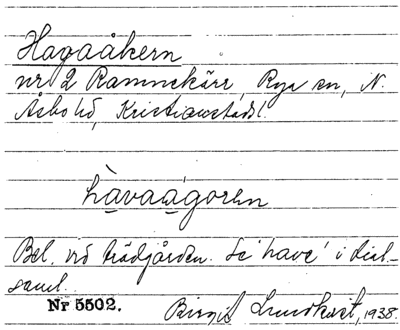 Hagaåkern
nr 2 Ramnekärr, Rya sn, N.
Åsbo hd, Kristianstads l.
havaågoren
Bel. vid trädgården. Se 'have' i dial-
saml.
Nr 5502. Birgit Lundkvist, 1938.